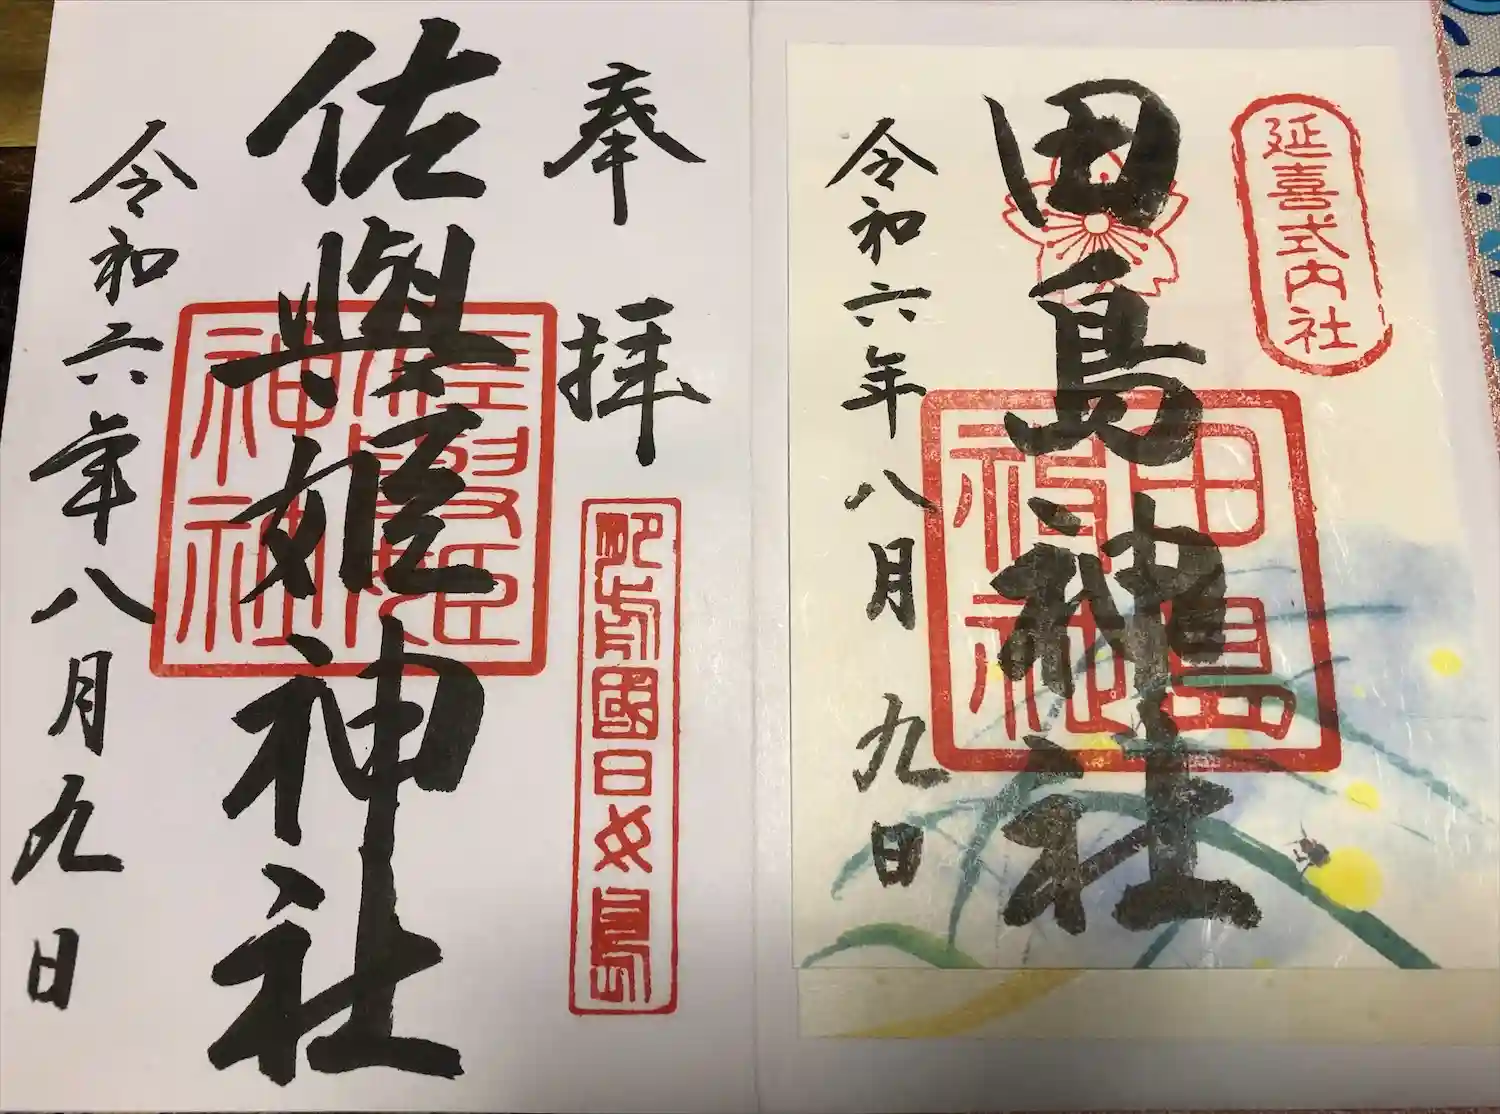 延喜式内社
田島神社
田島神社
令和六年八月九日
奉拝
肥前國日女島
佐與姫神社
令和六年八月九日